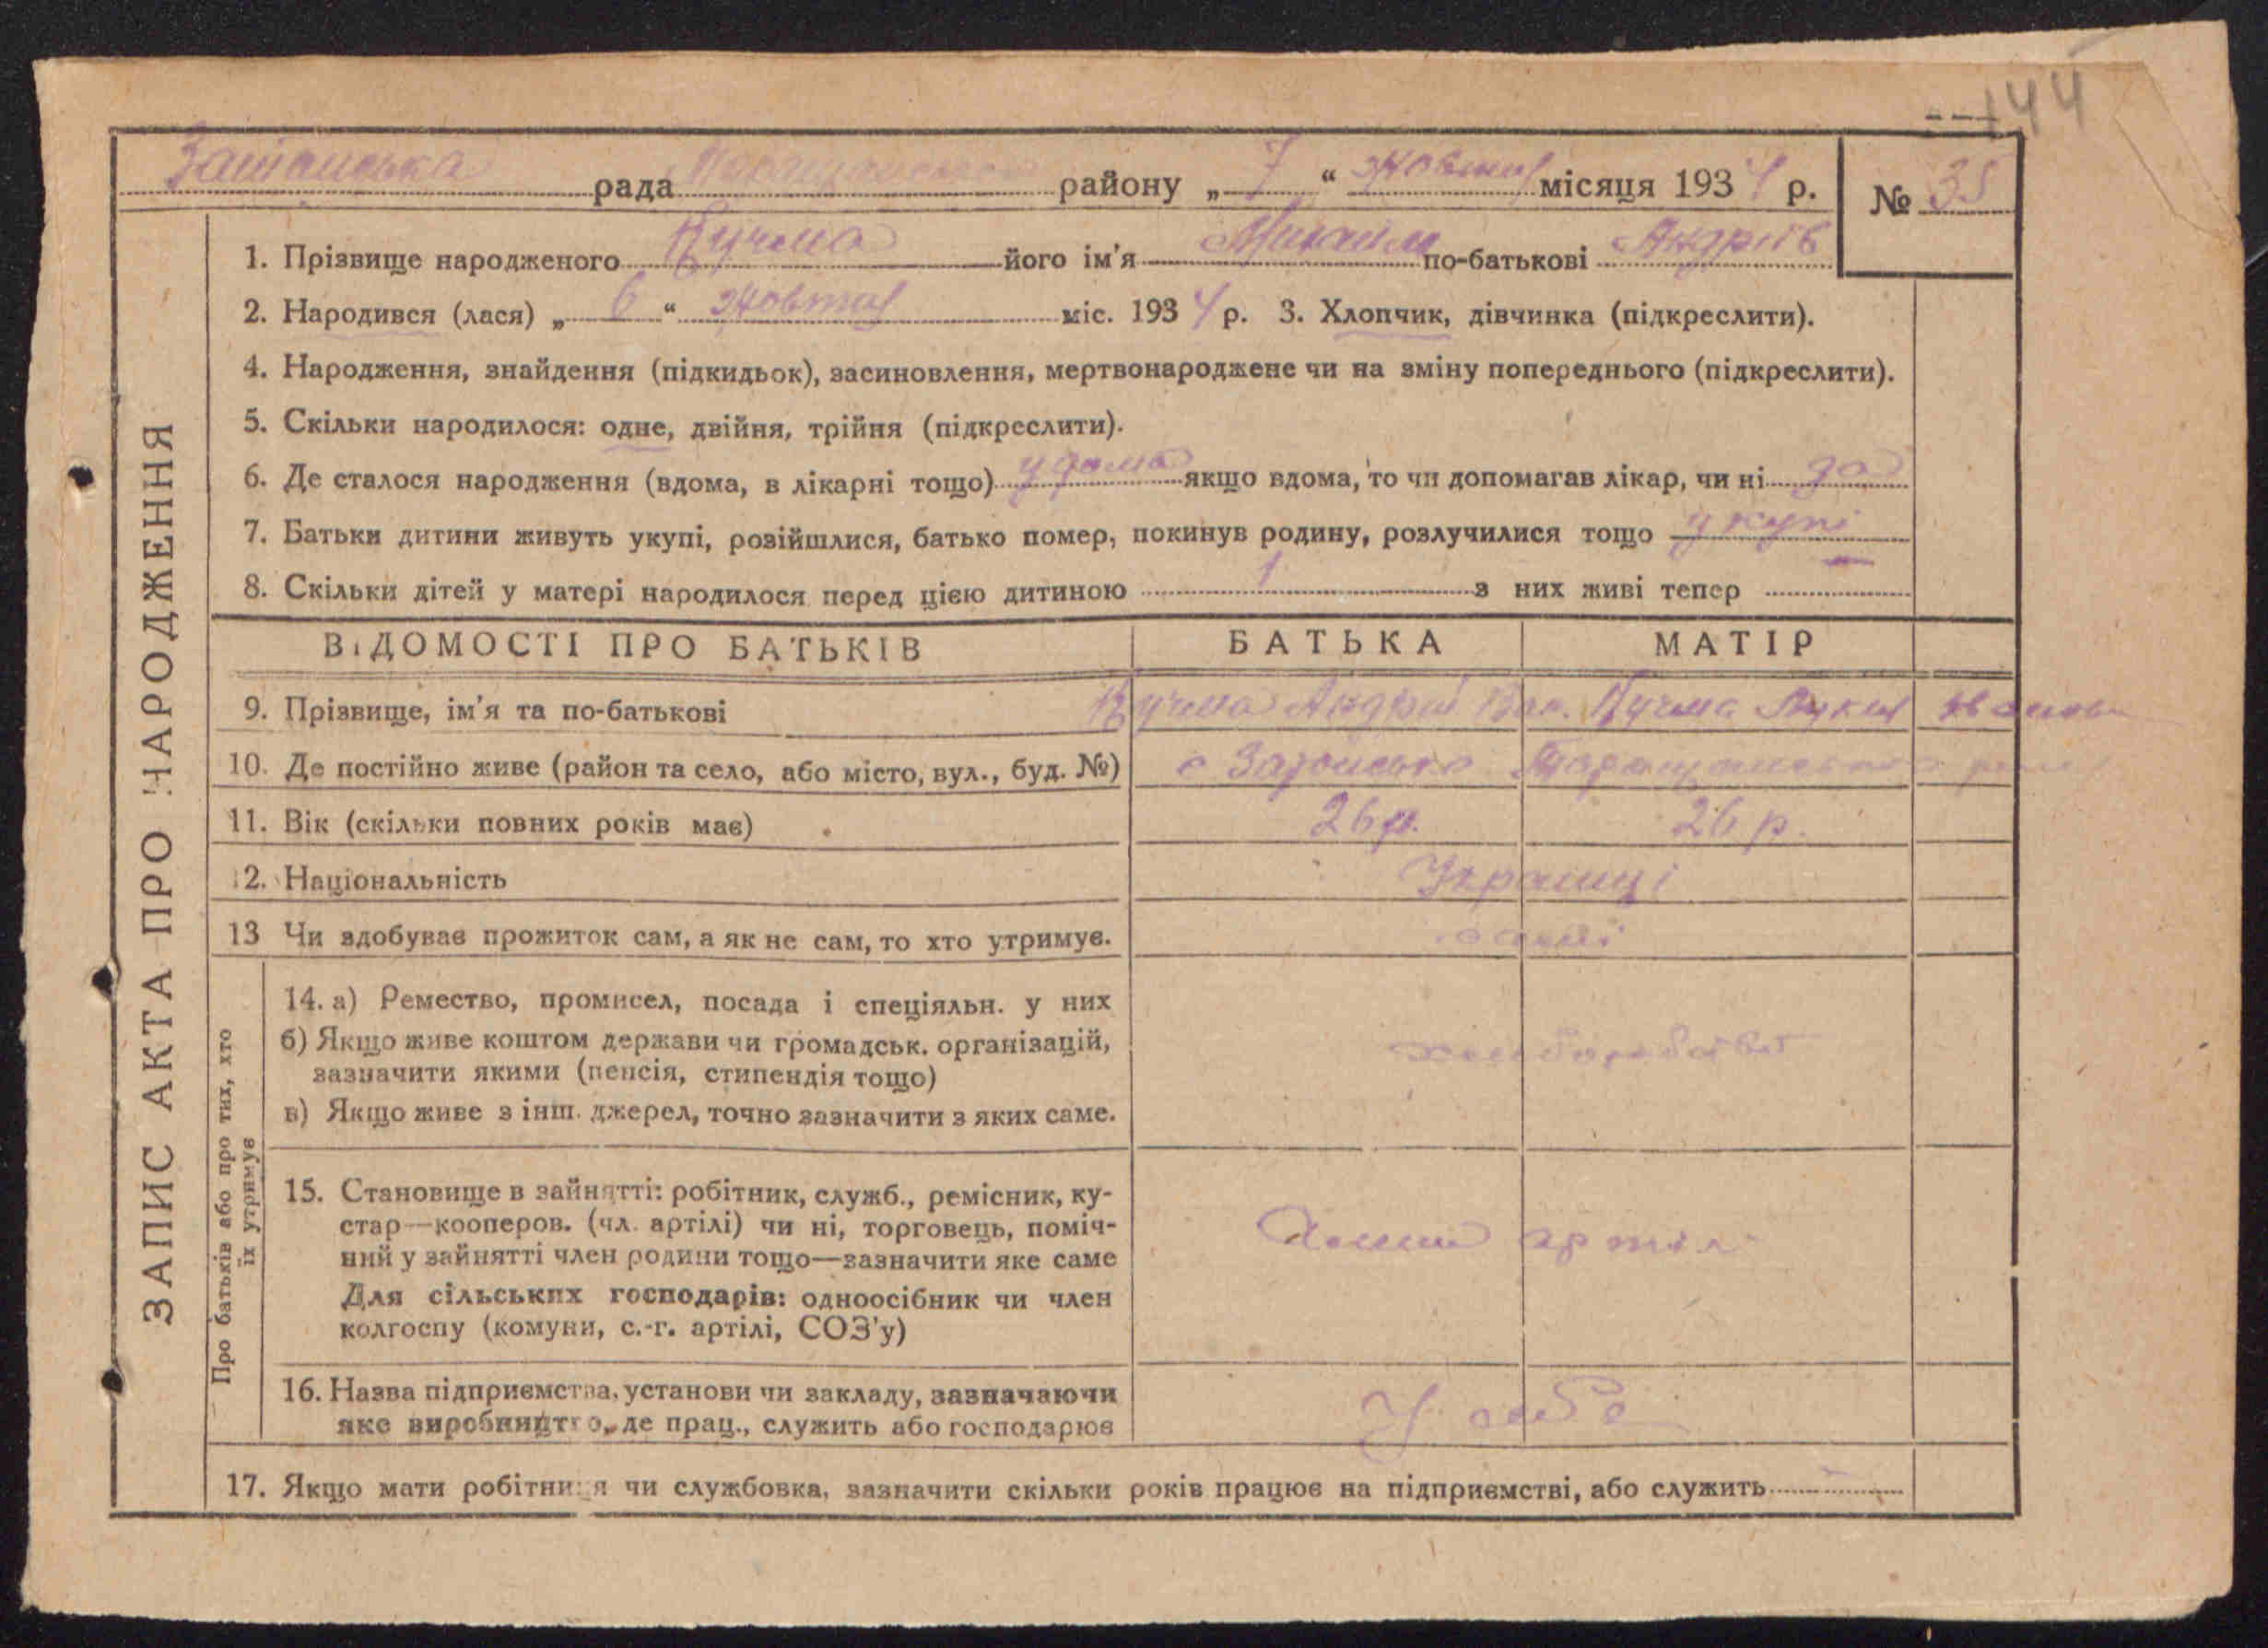 144
рада района „ 7 “ жовтня місяця 1934 р. № 35
1. Прізвище народженого Кучма його ім'я Михайло по-батькові Андріїв
2. Народився (лася) „ 6 “ жовтня міс. 1934 р. 3. Хлопчик, дівчинка (підкреслити).
4. Народження, знайдення (підкидьок), засиновлення, мертвонароджене чи на зміну попереднього (підкреслити).
5. Скільки народилося: одне, двійня, трійня (підкреслити).
6. Де сталося народження (вдома, в лікарні тощо) удома якщо вдома, то чи допомагав лікар, чи ні да
7. Батьки дитини живуть укупі, розійшлися, батько помер, покинув родину, розлучилися тощо укупі
8. Скільки дітей у матері народилося перед цією дитиною 1 з них живі тепер —
ВІДОМОСТІ ПРО БАТЬКІВ БАТЬКА МАТІР
9. Прізвище, ім'я та по-батькові Кучма Андрій Кучма
10. Де постійно живе (район та село, або місто, вул., буд. №) с Таращанського
11. Вік (скільки повних років має) 26 р. 26 р.
12. Національність Українці
13 Чи здобуває прожиток сам, а як не сам, то хто утримує. самі
14. а) Ремество, промисел, посада і спеціяльн. у них
б) Якщо живе коштом держави чи громадськ. організацій,
зазначити якими (пенсія, стипендія тощо)
в) Якщо живе з інш. джерел, точно зазначити з яких саме.
15. Становище в зайнятті: робітник, служб., ремісник, ку-
стар—кооперов. (чл. артілі) чи ні, торговець, поміч-
ний у зайнятті член родини тощо—зазначити яке саме
Для сільських господарів: одноосібник чи член
колгоспу (комуни, с.-г. артілі, СОЗ'у)
16. Назва підприємства, установи чи закладу, зазначаючи
яке виробництво, де прац., служить або господарює
17. Якщо мати робітниця чи службовка, зазначити скільки років працює на підприємстві, або служить
ЗАПИС АКТА ПРО НАРОДЖЕННЯ
Про батьків або про тих, хто
їх утримує